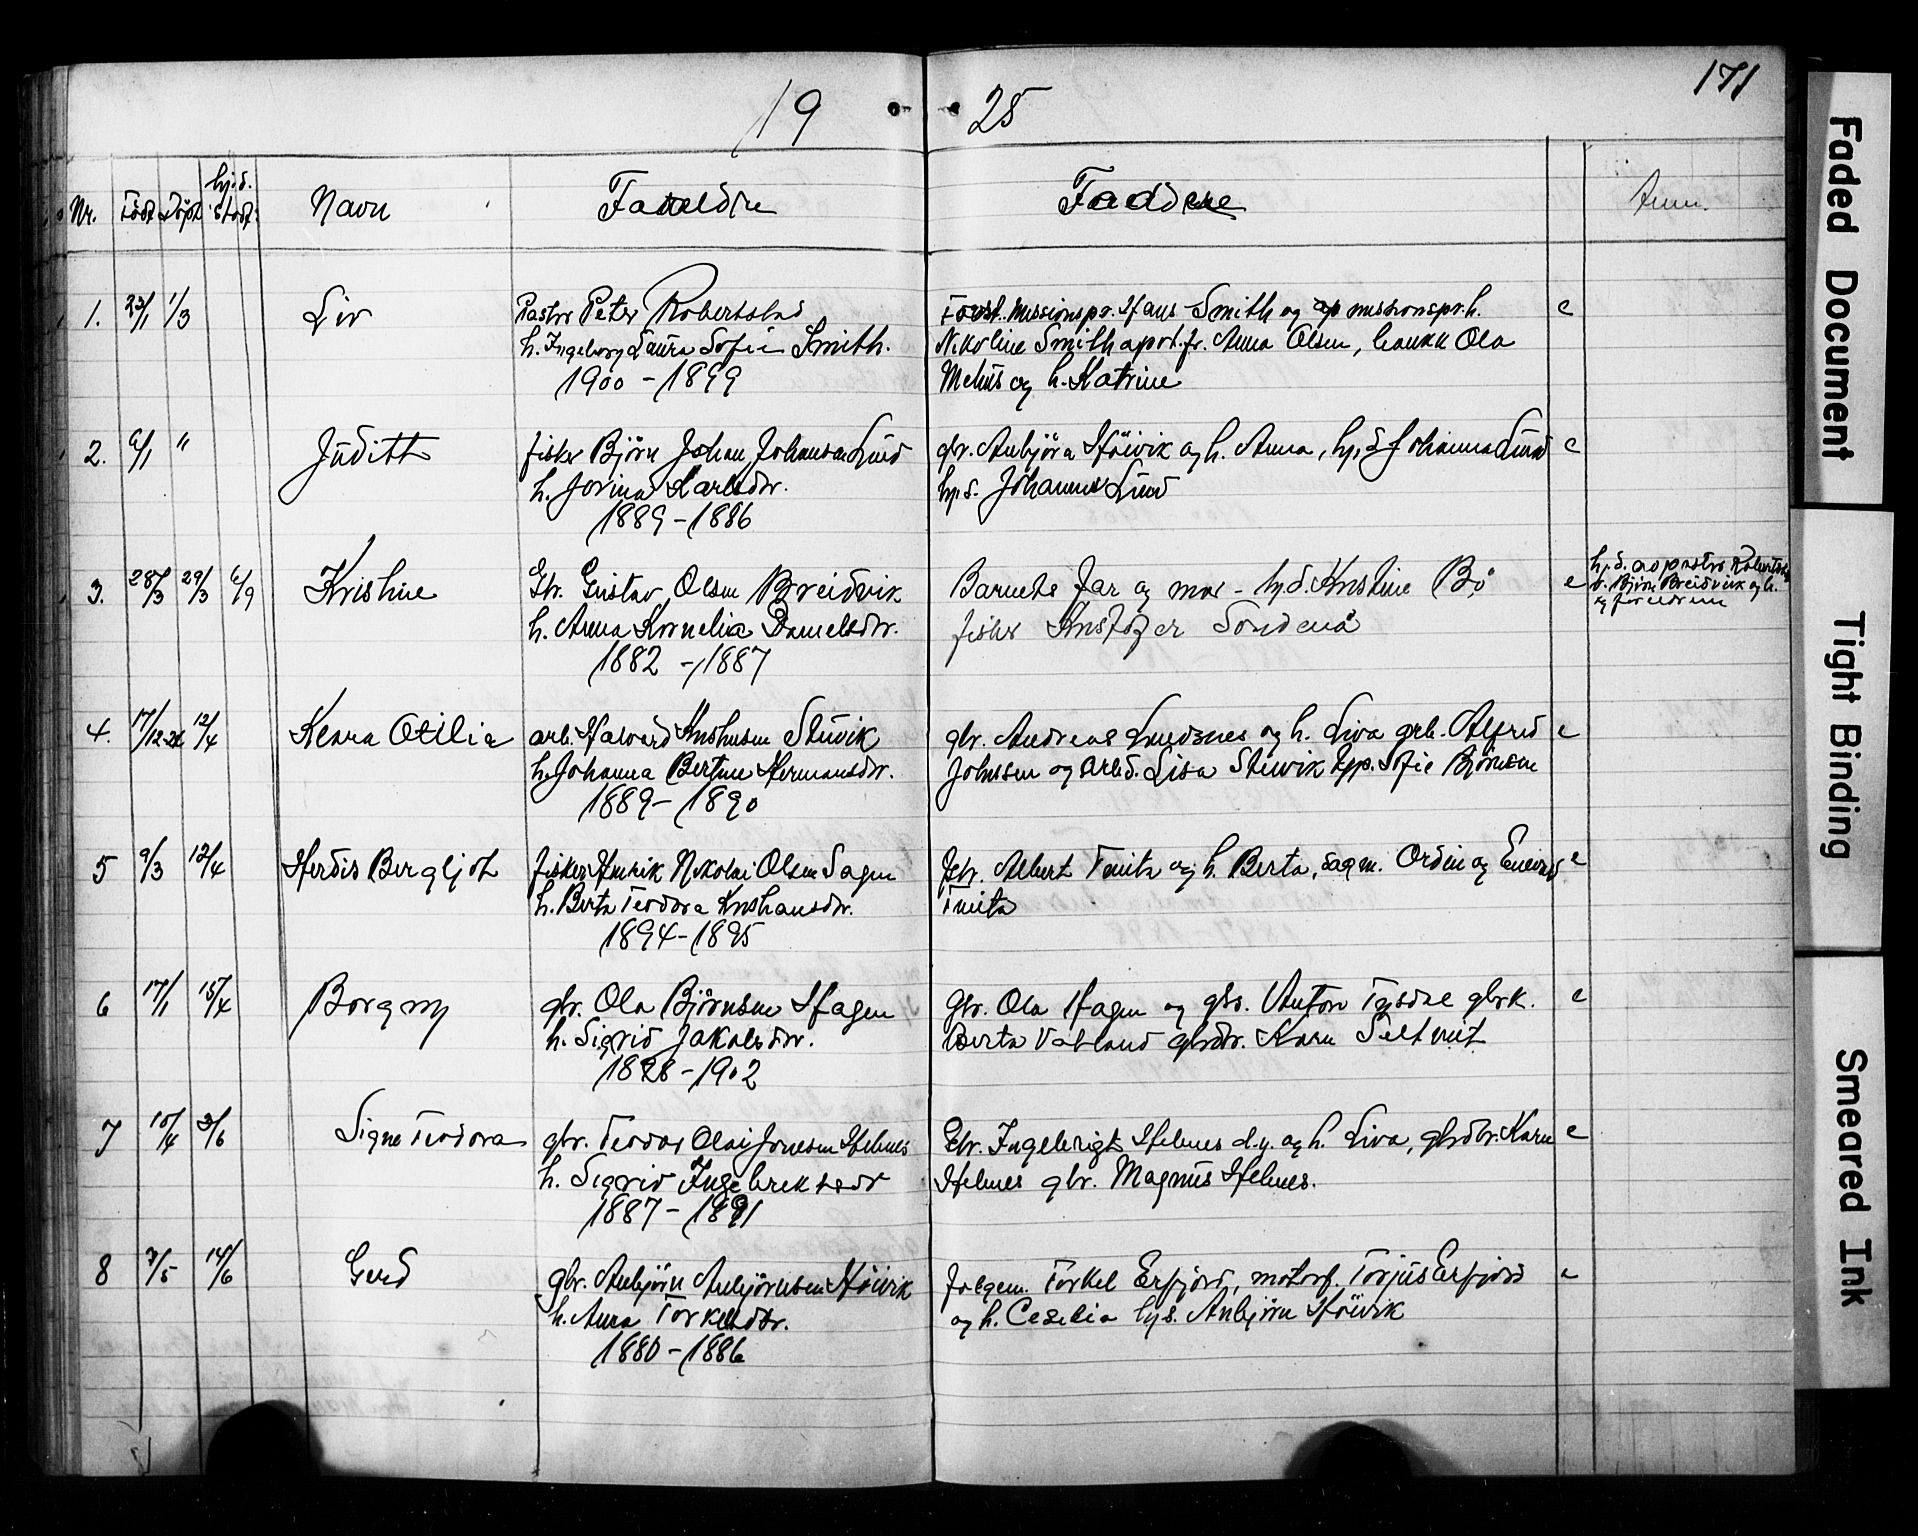 171
19 25
Nr. Födt Döpt hj.d. stadf. Navn Foreldre Faddere Anm.
1. 23/1 1/3 Liv Pastor Peter Robertstad
h. Ingeborg Laura Sofie Smith.
1900 - 1899
Forst. missionspr. Hans Smith og missionspr. h.
Nikoline Smith apot. fr. Anna Olsen, Ola
Mehus og h. Katrine
e
2. 6/1 " Judith fisker Björn Johan Johansen Lund
h. Jorina Karlsdtr.
1889 - 1886
gbr. Anbjörn Höivik og h. Anna, hj.d. Johanna Lund
hj.d. Johannes Lund
e
3. 28/3 29/3 6/9 Kristine Gbr. Gustav Olsen Breidvik
h. Anna Kornelia Danielsdtr.
1882 - 1887
Barnets far og mor - hj.d. Kristine Bö
fisker Kristofer Söndenå
e
hj.d. av pastor Robertstad
v. Björn Breidvik og h.
og foreldrene
4. 17/12-24 12/4 Klara Otilia arb. Halvard Kristiansen Stuvik
h. Johanna Bertine Hermansdtr.
1889 - 1890
gbr. Andreas Lundsnes og h. Liva arb. Alfred
Johnsen og arb.d. Lisa Stuvik Sofie Björnsen
e
5 9/3 12/4 Herdis Bergljot fisker Henrik Nikolai Olsen Sagen
h. Berta Teodora Kristiansdtr.
1894 - 1895
fbr. Albert Tveita og h. Berta, sagm. Ordin og Enevald
Tveita
e
6 17/1 15/4 Borgny gbr. Ola Björnsen Hagen
h. Sigrid Jakobsdtr.
1898 - 1902
Gbr. Ola Hagen og gbs. Anton Tysdal gbrk.
Berta Vatland gbrdtr. Karen Seltveit
e
7 10/4 2/6 Signe Teodora gbr. Teodor Olai Jonesen Helmes
h. Sigrid Ingebrektsdr
1887 - 1891
Gbr. Ingebrigt Helmes d.y. og h. Liva, gbrdtr. Karen
Helmes gbr. Magnus Helmes.
e
8 7/5 14/6 Gerd gbr. Anbjörn Anbjörnsen Höivik
h. Anna Torkelsdtr.
1880 - 1886
Torkel Erfjord, motorf. Torjus Erfjord
og h. Cesilia hj.s. Anbjörn Höivik
e
Faded Document
Tight Binding
Smeared Ink